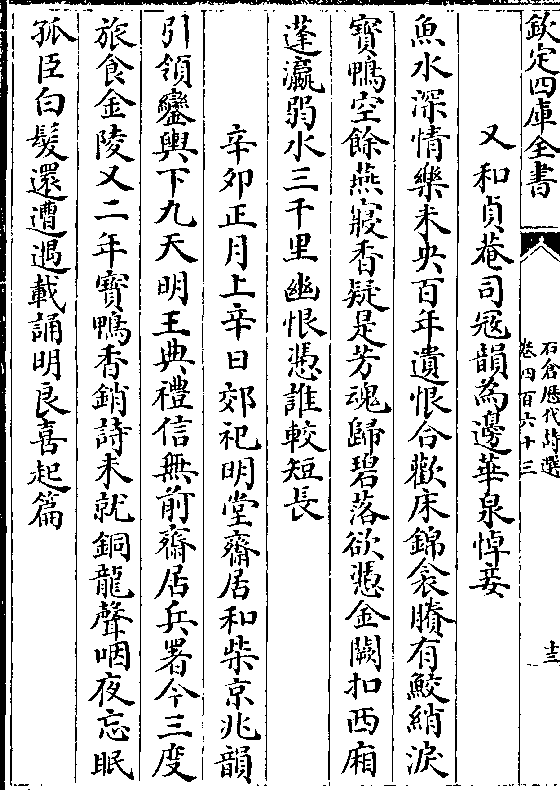 欽定四庫全書
石倉歷代詩選
卷四百六十三
十三
又和貞菴司冦韻為邊華泉悼妾
魚水深情樂未央百年遺恨合歡床錦衾賸有鮫綃淚
寳鴨空餘燕寢香疑是芳魂歸碧落欲憑金闕扣西廂
蓬瀛弱水三千里幽恨憑誰較短長
辛卯正月上辛日郊祀明堂齋居和柴京兆韻
引領鑾輿下九天明王典禮信無前齋居兵署今三度
旅食金陵又二年寳鴨香銷詩未就銅龍聲咽夜忘眠
孤臣白髮還遭遇載誦明良喜起篇